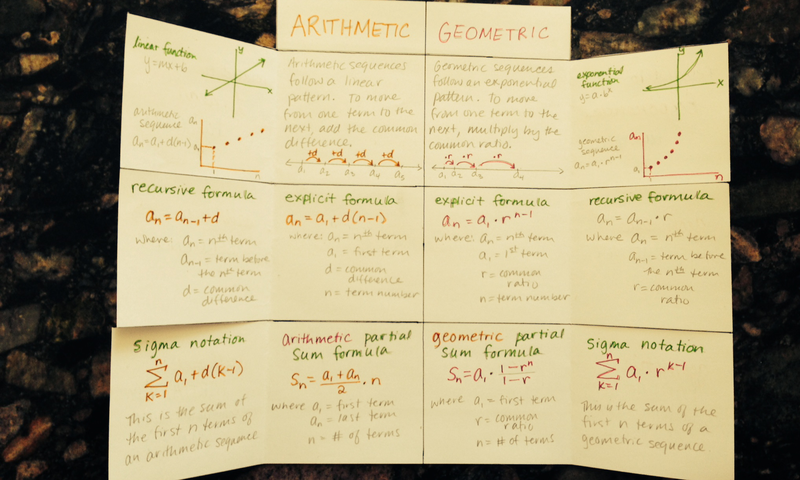 ARITHMETIC
GEOMETRIC
linear function
y=mx+b
y
x
arithmetic
sequence
aₙ=a₁+d(n-1)
aₙ
a₁
1
n
Arithmetic sequences
follow a linear
pattern. To move
from one term to the
next, add the common
difference.
+d +d +d +d
a₁ a₂ a₃ a₄ a₅
Geometric sequences
follow an exponential
pattern. To move
from one term to the
next, multiply by the
common ratio.
·r ·r ·r
a₁ a₂ a₃ a₄
y
x
exponential
function
y=a·bˣ
geometric
sequence
aₙ=a₁·rⁿ⁻¹
aₙ
a₁
1
n
recursive formula
aₙ=aₙ₋₁+d
where: aₙ=nᵗʰ term
aₙ₋₁=term before
the nᵗʰ term
d=common
difference
explicit formula
aₙ=a₁+d(n-1)
where: aₙ=nᵗʰ term
a₁=first term
d=common
difference
n=term number
explicit formula
aₙ=a₁·rⁿ⁻¹
where: aₙ=nᵗʰ term
a₁=1ˢᵗ term
r=common
ratio
n=term number
recursive formula
aₙ=aₙ₋₁·r
where aₙ=nᵗʰ term
aₙ₋₁=term before
the nᵗʰ term
r=common
ratio
sigma notation
n
∑ a₁+d(k-1)
k=1
This is the sum of
the first n terms of
an arithmetic sequence
arithmetic partial
sum formula
Sₙ=(a₁+aₙ)/2·n
where a₁=first term
aₙ=last term
n=# of terms
geometric partial
sum formula
Sₙ=a₁·(1-rⁿ)/(1-r)
where a₁=first term
r=common
ratio
n=# of terms
sigma notation
n
∑ a₁·rᵏ⁻¹
k=1
This is the sum of the
first n terms of a
geometric sequence.